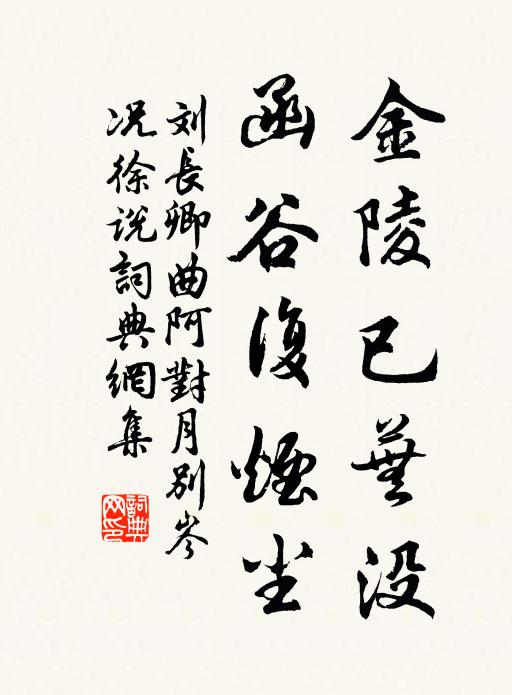 金陵已蕪没
函谷復煙尘
刘長卿曲阿對月别岑
况徐说詞典網集
詞典网印